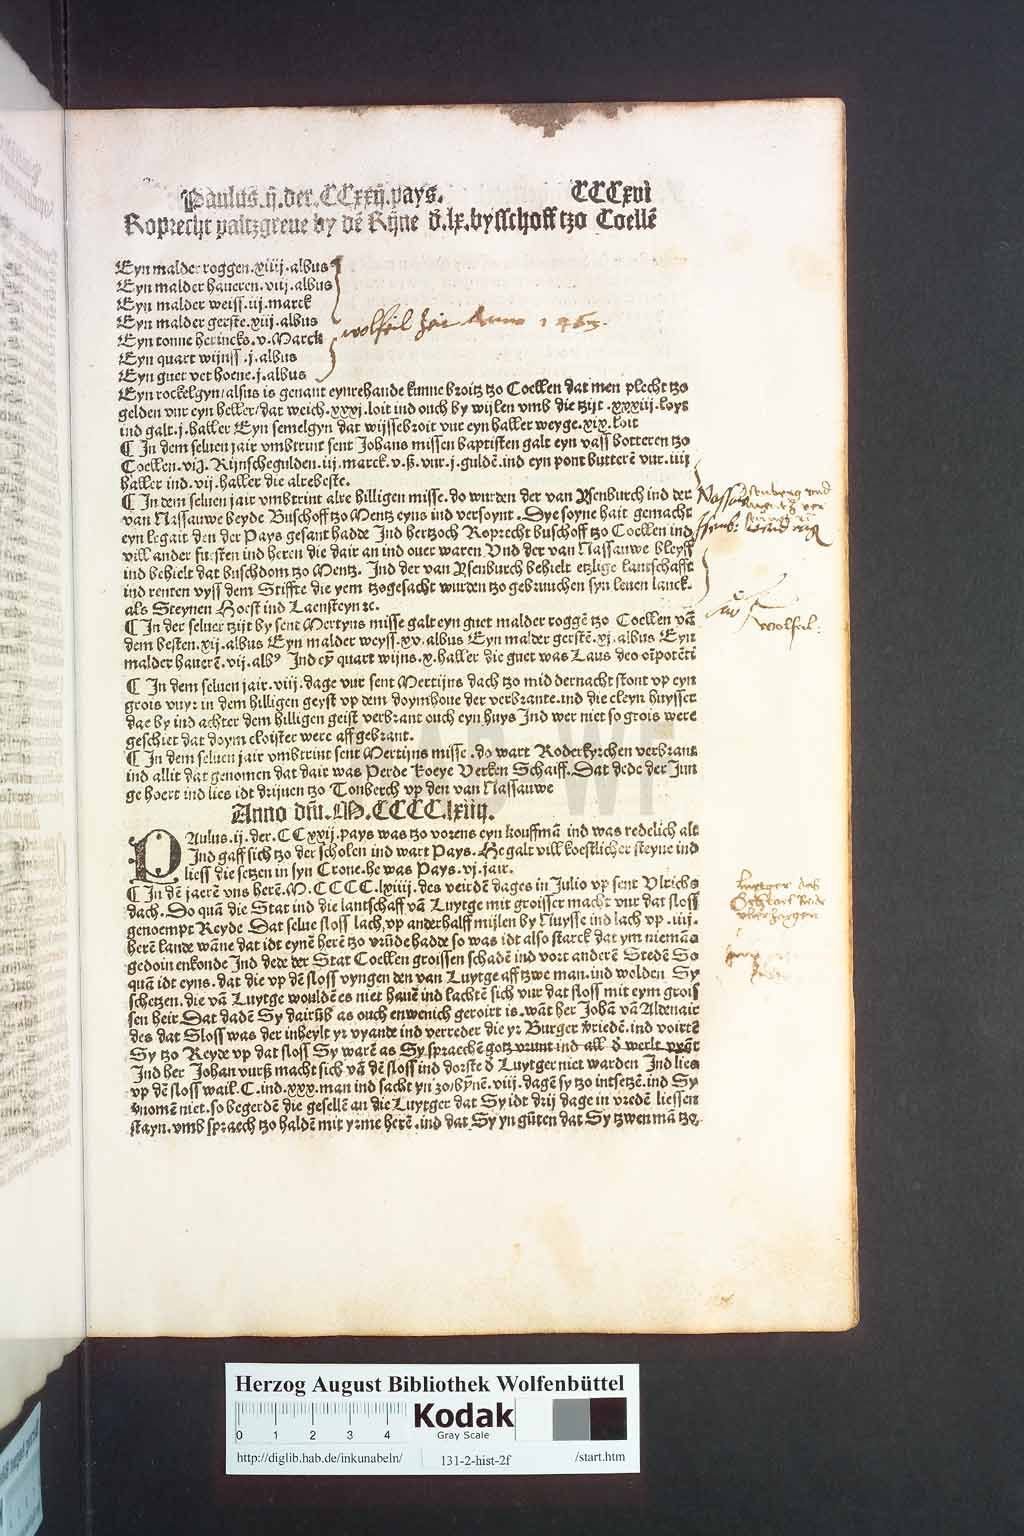 Paulus.ij.der.CCxxij.pays. CCCxvi
Roprecht paltzgreue by dē Rijne d̄.lx.bysschoff tzo Coellē
Eyn malder roggen.xiiij.albus
Eyn malder haueren.viij.albus
Eyn malder weiss.iij.marck
Eyn malder gerste.xiij.albus
Eyn tonne herincks.v.Marck
wolfeil Jair Anno 1463.
Eyn quart wijnss.j.albus
Eyn guet vet hoene.j.albus
Eyn rockelgyn/alsus is genant eynrehande kunne broitz tzo Coellen dat men plecht tzo
gelden vur eyn heller/dat weich.xxxj.loit ind ouch by wijlen vmb die tzijt.xxxiij.loys
ind galt.j.haller Eyn semelgyn dat wijssebroit vur eyn haller weyge.xix.loit
¶ In dem seluen jair vmbtrint sent Johans missen baptisten galt eyn vass botteren tzo
Coellen.vij.Rijnschegulden.iij.marck.v.ß.vur.j.guldē.ind eyn pont butterē vur.iiij
haller ind.vij.haller die alrebeste.
¶ In dem seluen jair vmbtrint alre hilligen misse.do wurden der van Ysenburch ind der
van Nassauwe beyde Buschoff tzo Mentz eyns ind versoynt.Dye soyne hait gemacht
eyn legait den der Pays gesant hadde Ind hertzoch Roprecht buschoff tzo Coellen ind
vill ander fursten ind heren die dair an ind ouer waren Vnd der van Nassauwe bleyff
ind behielt dat buschdom tzo Mentz. Ind der van Ysenburch behielt etzlige lantschafft
ind renten vyss dem Stiffte die yem tzogesacht wurden tzo gebruuchen syn leuen lanck.
als Steynen Hoest ind Laensteyn ⁊c.
¶ In der seluer tzijt by sent Mertyns misse galt eyn guet malder roggē tzo Coellen vā
dem besten.xij.albus Eyn malder weyss.xv.albus Eyn malder gerstē.xj.albus Eyn
malder hauerē.vij.albꝰ Ind eȳ quart wijns.x.haller die guet was Laus deo oīpotēti
wolfeil:
¶ In dem seluen jair.viij.dage vur sent Mertijns dach tzo mid dernacht stont vp eyn
grois vuyr in dem hilligen geyst vp dem doymhoue der verbrante.ind die cleyn huysser
dae by ind achter dem hilligen geist verbrant ouch eyn huys Ind wer niet so grois were
geschiet dat doym cloister were aff gebrant.
¶ In dem seluen jair vmbtrint sent Mertijns misse.do wart Roderkyrchen verbrans
ind allit dat genomen dat dair was Perde Koeye Verken Schaiff.Dat dede der Jun
ge hoert ind lies idt drijuen tzo Tonberch vp den van Nassauwe
Anno dn̄i.M.CCCC.lxiiij.
PAulus.ij.der.CCxxij.pays was tzo vorens eyn kouffmā ind was redelich alt
Ind gaff sich tzo der scholen ind wart Pays.He galt vill koestlicher steyne ind
liess die setzen in syn Crone.he was Pays.vj.jair.
¶ In dē jaerē vns herē.M.CCCC.lxiiij.des veirdē dages in Julio vp sent Vlrichs
dach.So quā die Stat ind die lantschaff vā Luytge mit groisser macht vur dat sloss
genoempt Reyde Dat selue sloss lach vp anderhalff mijlen by Nuysse ind lach vp.iiij.
herē lande wāne dat idt eynē herē tzo vrūde hadde so was idt also starck dat ym niemās
gedoin enkonde Ind dede der Stat Coellen groissen schadē ind vort anderē Stedē So
quā idt eyns.dat die vp dē sloss vyngen den van Luytge aff tzwe man.ind wolden Sy
schetzen.die vā Luytge wouldē es niet hauē ind lachtē sich vur dat sloss mit eym grois
sen heir.Dat dadē Sy dairūb as ouch enwenich geroirt is.wāt her Johā vā Aldenair
des dat Sloss was der inheylt yr vyande ind verreder die yr Burger v̄riedē.ind voirtē
Sy tzo Reyde vp dat sloss Sy warē as Sy spraechē gotz vrunt ind all d̄ werlt vyāt
Ind her Johan vurß macht sich vā dē sloss ind dorste d̄ Luytger niet warden Ind lies
vp dē sloss wail.C.ind.xxx.man ind sacht yn zo/bȳnē.viij.dagē sy tzo intsetzē.ind Sy
v̄nomē niet.so begerdē die gesellē an die Luytger dat Sy idt drij dage in vredē liessen
stayn.vmb spraech tzo haldē mit yrme herē.ind dat Sy yn gūten dat Sy tzwen mā tzo
HAB WF
Herzog August Bibliothek Wolfenbüttel
0 1 2 3 4
Kodak
Gray Scale
http://diglib.hab.de/inkunabeln/ 131-2-hist-2f /start.htm